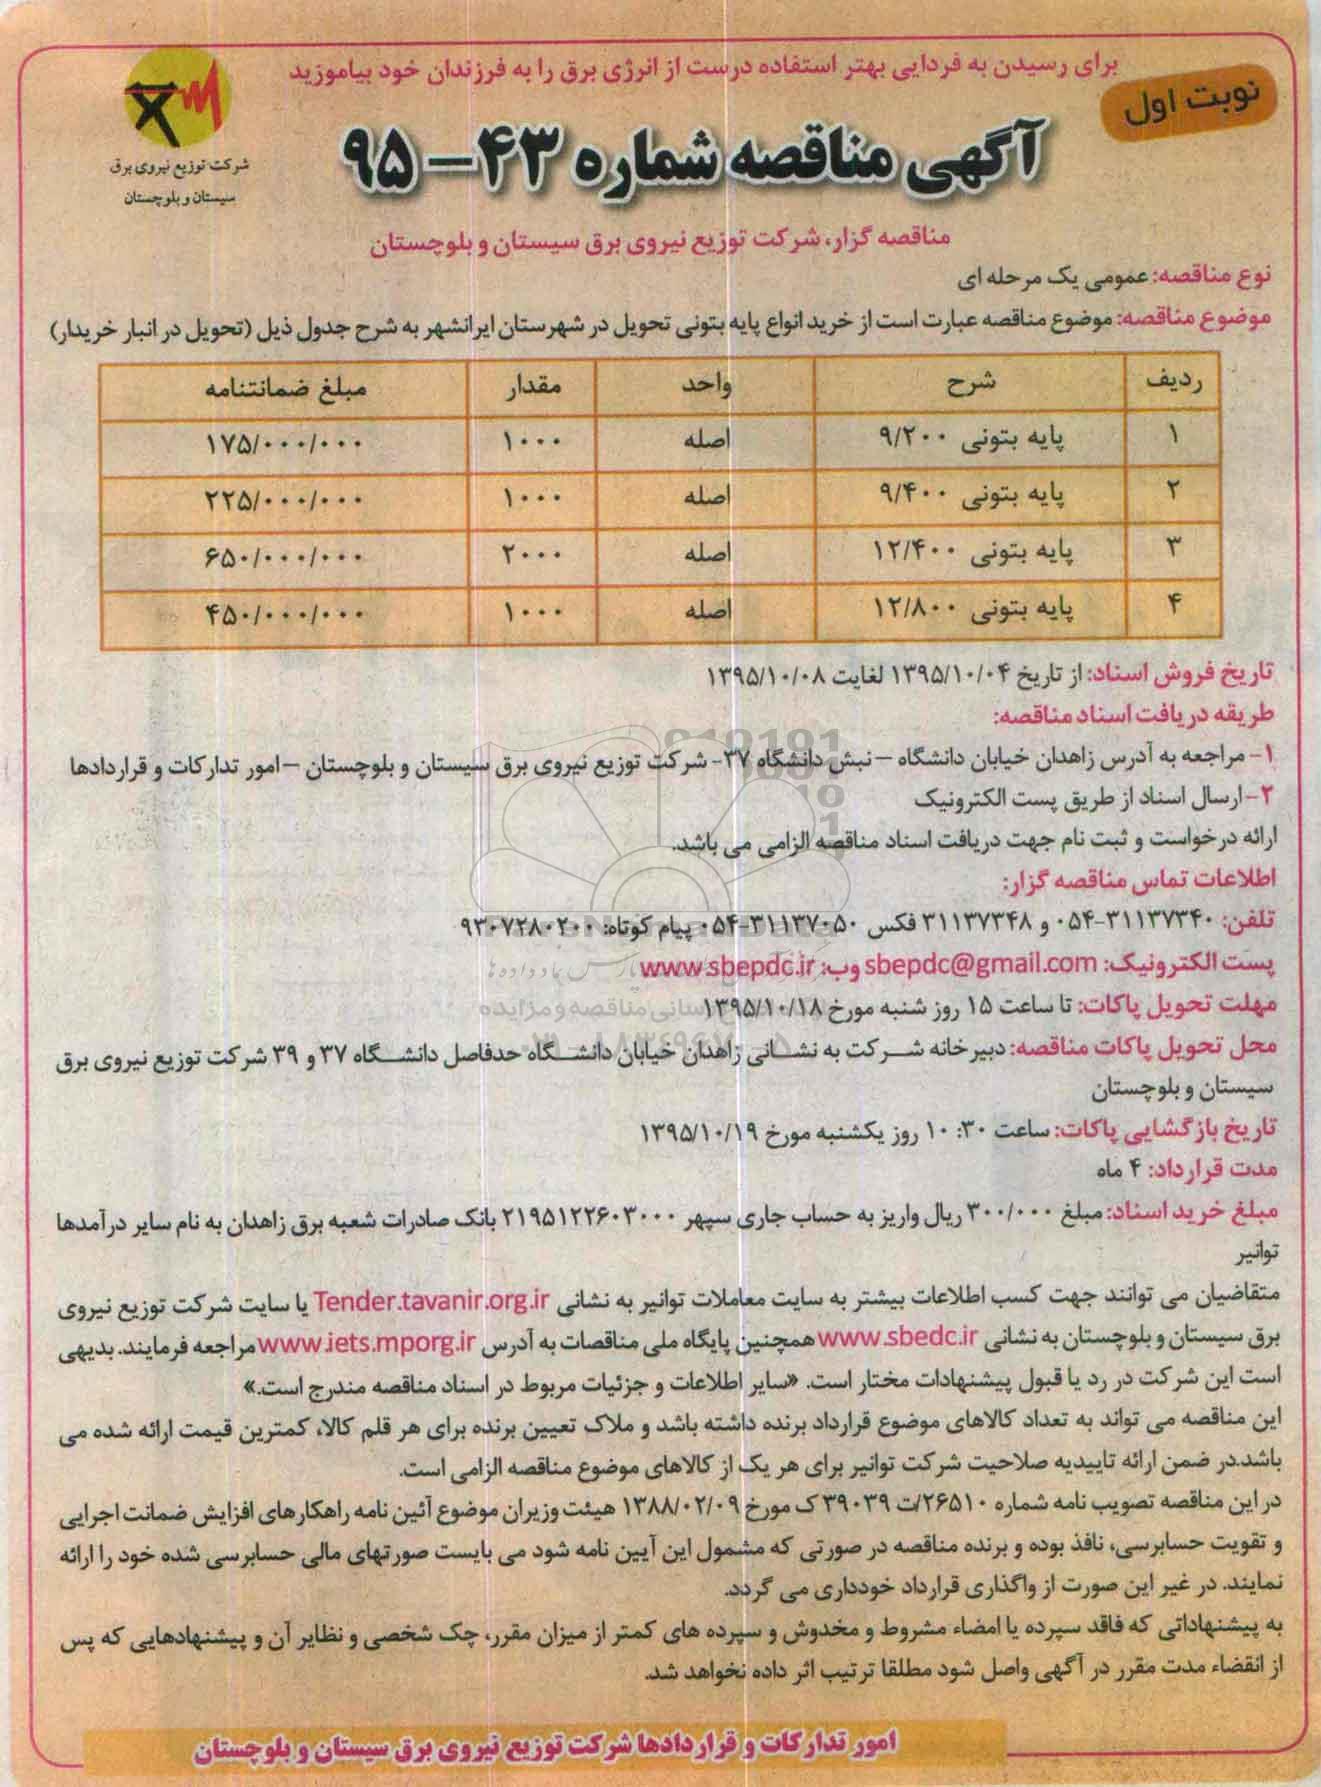 برای رسیدن به فردایی بهتر استفاده درست از انرژی برق را به فرزندان خود بیاموزید
نوبت اول
آگهی مناقصه شماره ۴۳ - ۹۵
شرکت توزیع نیروی برق
سیستان و بلوچستان
مناقصه گزار، شرکت توزیع نیروی برق سیستان و بلوچستان
نوع مناقصه: عمومی یک مرحله ای
موضوع مناقصه: موضوع مناقصه عبارت است از خرید انواع پایه بتونی تحویل در شهرستان ایرانشهر به شرح جدول ذیل (تحویل در انبار خریدار)
ردیف شرح واحد مقدار مبلغ ضمانتنامه
۱ پایه بتونی ۹/۲۰۰ اصله ۱۰۰۰ ۱۷۵/۰۰۰/۰۰۰
۲ پایه بتونی ۹/۴۰۰ اصله ۱۰۰۰ ۲۲۵/۰۰۰/۰۰۰
۳ پایه بتونی ۱۲/۴۰۰ اصله ۲۰۰۰ ۶۵۰/۰۰۰/۰۰۰
۴ پایه بتونی ۱۲/۸۰۰ اصله ۱۰۰۰ ۴۵۰/۰۰۰/۰۰۰
تاریخ فروش اسناد: از تاریخ ۱۳۹۵/۱۰/۰۴ لغایت ۱۳۹۵/۱۰/۰۸
طریقه دریافت اسناد مناقصه:
۱- مراجعه به آدرس زاهدان خیابان دانشگاه – نبش دانشگاه ۳۷- شرکت توزیع نیروی برق سیستان و بلوچستان – امور تدارکات و قراردادها
۲- ارسال اسناد از طریق پست الکترونیک
ارائه درخواست و ثبت نام جهت دریافت اسناد مناقصه الزامی می باشد.
اطلاعات تماس مناقصه گزار:
تلفن: ۳۱۱۳۷۳۴۰-۰۵۴ و ۳۱۱۳۷۳۴۸ فکس ۳۱۱۳۷۰۵۰-۰۵۴ پیام کوتاه: ۹۳۰۷۲۸۰۲۰۰
پست الکترونیک: sbepdc@gmail.com وب: www.sbepdc.ir
مهلت تحویل پاکات: تا ساعت ۱۵ روز شنبه مورخ ۱۳۹۵/۱۰/۱۸
محل تحویل پاکات مناقصه: دبیرخانه شرکت به نشانی زاهدان خیابان دانشگاه حدفاصل دانشگاه ۳۷ و ۳۹ شرکت توزیع نیروی برق
سیستان و بلوچستان
تاریخ بازگشایی پاکات: ساعت ۳۰: ۱۰ روز یکشنبه مورخ ۱۳۹۵/۱۰/۱۹
مدت قرارداد: ۴ ماه
مبلغ خرید اسناد: مبلغ ۳۰۰/۰۰۰ ریال واریز به حساب جاری سپهر ۲۱۹۵۱۲۲۶۰۳۰۰۰ بانک صادرات شعبه برق زاهدان به نام سایر درآمدها
توانیر
متقاضیان می توانند جهت کسب اطلاعات بیشتر به سایت معاملات توانیر به نشانی Tender.tavanir.org.ir یا سایت شرکت توزیع نیروی
برق سیستان و بلوچستان به نشانی www.sbedc.ir همچنین پایگاه ملی مناقصات به آدرس www.iets.mporg.ir مراجعه فرمایند. بدیهی
است این شرکت در رد یا قبول پیشنهادات مختار است. «سایر اطلاعات و جزئیات مربوط در اسناد مناقصه مندرج است.»
این مناقصه می تواند به تعداد کالاهای موضوع قرارداد برنده داشته باشد و ملاک تعیین برنده برای هر قلم کالا، کمترین قیمت ارائه شده می
باشد.در ضمن ارائه تاییدیه صلاحیت شرکت توانیر برای هر یک از کالاهای موضوع مناقصه الزامی است.
در این مناقصه تصویب نامه شماره ۲۶۵۱۰/ت ۳۹۰۳۹ ک مورخ ۱۳۸۸/۰۲/۰۹ هیئت وزیران موضوع آئین نامه راهکارهای افزایش ضمانت اجرایی
و تقویت حسابرسی، نافذ بوده و برنده مناقصه در صورتی که مشمول این آیین نامه شود می بایست صورتهای مالی حسابرسی شده خود را ارائه
نمایند. در غیر این صورت از واگذاری قرارداد خودداری می گردد.
به پیشنهاداتی که فاقد سپرده یا امضاء مشروط و مخدوش و سپرده های کمتر از میزان مقرر، چک شخصی و نظایر آن و پیشنهادهایی که پس
از انقضاء مدت مقرر در آگهی واصل شود مطلقا ترتیب اثر داده نخواهد شد.
امور تدارکات و قراردادها شرکت توزیع نیروی برق سیستان و بلوچستان